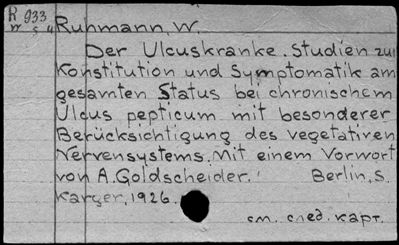 R 933 Ruhmann, W.
Der Ulcuskranke. Studien zur
Konstitution und Symptomatik am
gesamten Status bei chronischem
Ulcus pepticum mit besonderer
Berücksichtigung des vegetativen
Nervensystems. Mit einem Vorwort
von A. Goldscheider. Berlin, S.
Karger, 1926.
см. след. карт.